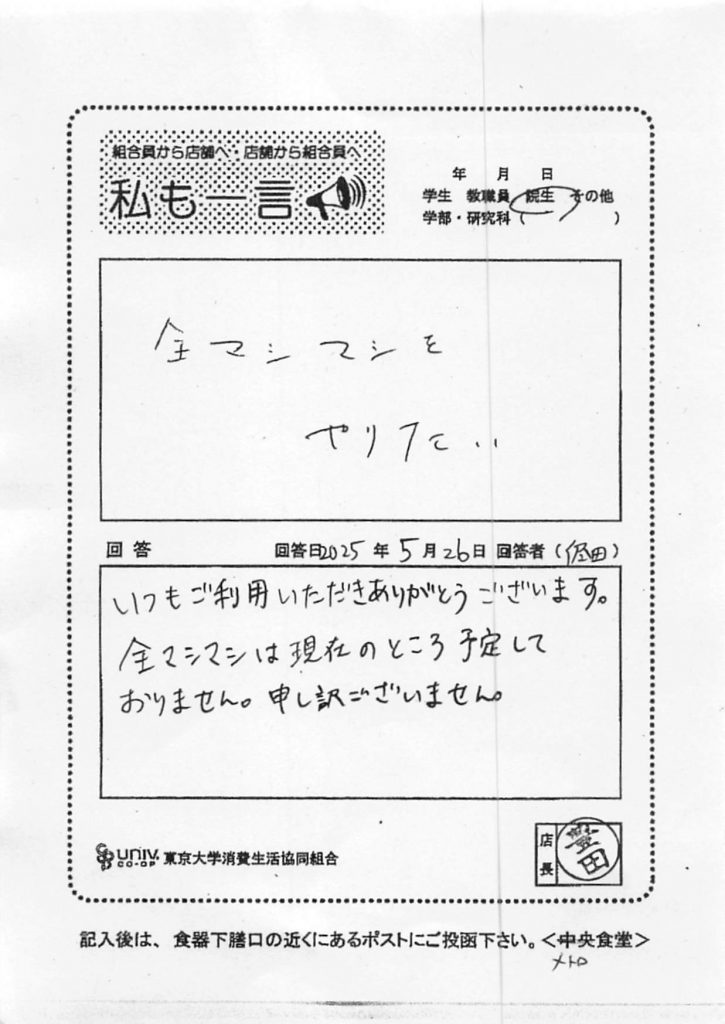 組合員から店舗へ・店舗から組合員へ
私も一言
年 月 日
学生 教職員 院生 その他
学部・研究科( )
全マシマシを
やりたい
回答 回答日2025年5月26日 回答者(田)
いつもご利用いただきありがとうございます。
全マシマシは現在のところ予定して
おりません。申し訳ございません。
univ.
CO-OP
東京大学消費生活協同組合
店長
豊田
記入後は、食器下膳口の近くにあるポストにご投函下さい。<中央食堂>
メトロ